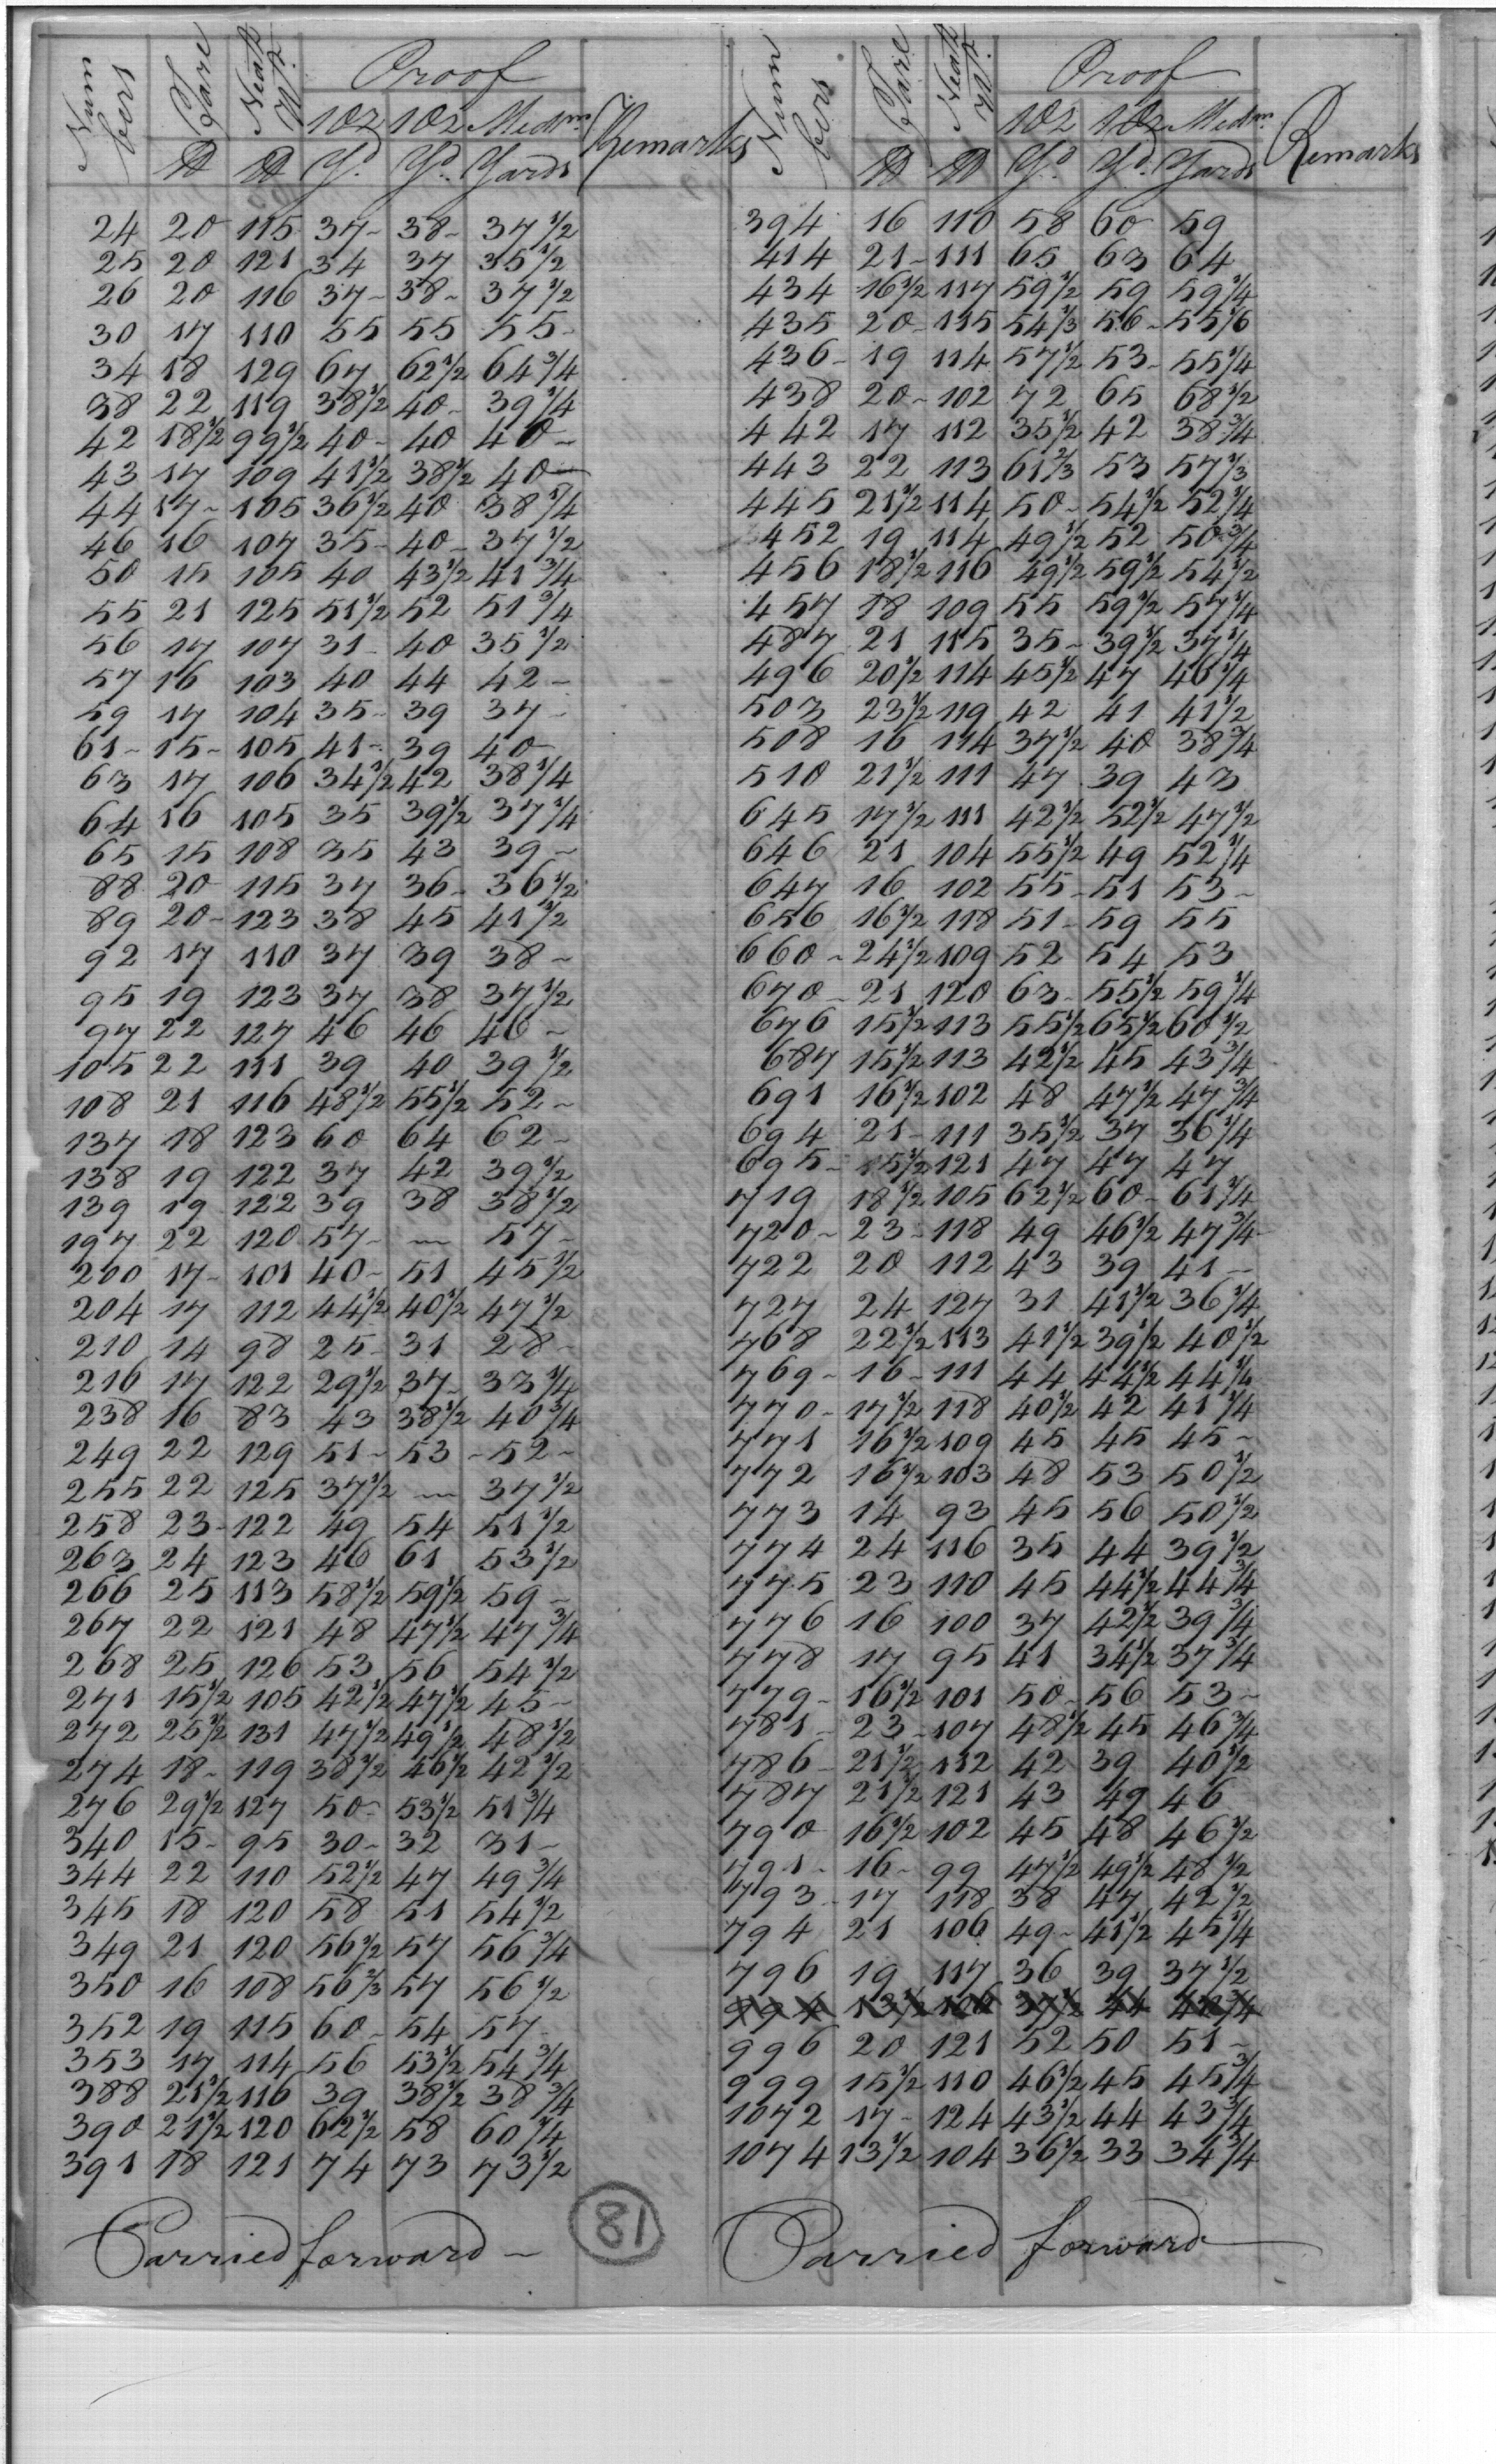 Num bers Tare Neat Wt. Proof Remarks
1 oz 1 oz Medm.
℔ ℔ Yd. Yd. Yards
24 20 115 37- 38- 37 1/2
25 20 121 34 37 35 1/2
26 20 116 37- 38- 37 1/2
30 17 110 55 55 55-
34 18 129 67 62 1/2 64 3/4
38 22 119 38 1/2 40- 39 1/4
42 18 1/2 99 1/2 40- 40 40-
43 17 109 41 1/2 38 1/2 40-
44 17- 105 36 1/2 40 38 1/4
46 16 107 35- 40- 37 1/2
50 15 105 40 43 1/2 41 3/4
55 21 125 51 1/2 52 51 3/4
56 17 107 31- 40 35 1/2
57 16 103 40 44 42-
59 17 104 35- 39 37-
61- 15- 105 41- 39 40-
63 17 106 34 1/2 42 38 1/4
64 16 105 35 39 1/2 37 1/4
65 15 108 35 43 39-
88 20 115 37 36- 36 1/2
89 20- 123 38 45 41 1/2
92 17 110 37 39 38-
95 19 123 37 38 37 1/2
97 22 127 46 46 46-
105 22 111 39 40 39 1/2
108 21 116 48 1/2 55 1/2 52-
137 18 123 60 64 62-
138 19 122 37 42 39 1/2
139 19 122 39 38 38 1/2
197 22 120 57- — 57-
200 17- 101 40- 51 45 1/2
204 17 112 44 1/2 40 1/2 47 1/2
210 14 98 25- 31 28-
216 17 122 29 1/2 37- 33 1/4
238 16 83 43 38 1/2 40 3/4
249 22 129 51- 53- 52-
255 22 125 37 1/2 — 37 1/2
258 23- 122 49 54 51 1/2
263 24 123 46 61 53 1/2
266 25 113 58 1/2 59 1/2 59-
267 22 121 48 47 1/2 47 3/4
268 25 126 53 56 54 1/2
271 15 1/2 105 42 1/2 47 1/2 45-
272 25 1/2 131 47 1/2 49 1/2 48 1/2
274 18- 119 38 1/2 46 1/2 42 1/2
276 29 1/2 127 50- 53 1/2 51 3/4
340 15- 95 30- 32 31-
344 22 110 52 1/2 47 49 3/4
345 18 120 58 51 54 1/2
349 21 120 56 1/2 57 56 3/4
350 16 108 56 2/3 57 56 1/2
352 19 115 60- 54 57-
353 17 114 56 53 1/2 54 3/4
388 21 1/2 116 39 38 1/2 38 3/4
390 21 1/2 120 62 1/2 58 60 1/4
391 18 121 74 73 73 1/2
Carried forward-
81
Num bers Tare Neat Wt. Proof Remarks
1 oz 1 oz Medm.
℔ ℔ Yd. Yd. Yards
394 16 110 58 60 59
414 21- 111 65 63 64
434 16 1/2 117 59 1/2 59 59 1/4
435 20- 115 54 1/3 56- 55 1/6
436- 19 114 57 1/2 53- 55 1/4
438 20- 102 72 65 68 1/2
442 17 112 35 1/2 42 38 3/4
443 22 113 61 2/3 53 57 1/3
445 21 1/2 114 50- 54 1/2 52 1/4
452 19 114 49 1/2 52 50 3/4
456 18 1/2 116 49 1/2 59 1/2 54 1/2
457 18 109 55 59 1/2 57 1/4
487 21 115 35- 39 1/2 37 1/4
496 20 1/2 114 45 1/2 47 46 1/4
503 23 1/2 119 42 41 41 1/2
508 16 114 37 1/2 40 38 3/4
510 21 1/2 111 47 39 43
645 17 1/2 111 42 1/2 52 1/2 47 1/2
646 21 104 55 1/2 49 52 1/4
647 16 102 55- 51 53-
656 16 1/2 118 51- 59 55
660- 24 1/2 109 52 54 53
670- 21 120 63- 55 1/2 59 1/4
676 15 1/2 113 55 1/2 65 1/2 60 1/2
687 15 1/2 113 42 1/2 45 43 3/4
691 16 1/2 102 48 47 1/2 47 3/4
694 21- 111 35 1/2 37 36 1/4
695- 15 1/2 121 47 47 47
719 18 1/2 105 62 1/2 60- 61 1/4
720- 23- 118 49 46 1/2 47 3/4
722 20 112 43 39 41-
727 24 127 31 41 1/2 36 1/4
768 22 1/2 113 41 1/2 39 1/2 40 1/2
769- 16- 111 44 44 1/2 44 1/4
770- 17 1/2 118 40 1/2 42 41 1/4
771 16 1/2 109 45 45 45-
772 16 1/2 103 48 53 50 1/2
773 14 93 45 56 50 1/2
774 24 116 35 44 39 1/2
775 23 110 45 44 1/2 44 3/4
776 16 100 37 42 1/2 39 3/4
778 17 95 41 34 1/2 37 3/4
779- 16 1/2 101 50- 56 53-
781- 23- 107 48 1/2 45 46 3/4
786- 21 1/2 112 42 39 40 1/2
787 21 1/2 121 43 49 46
790 16 1/2 102 45 48 46 1/2
791- 16- 99 47 1/2 49 1/2 48 1/2
793- 17 118 38 47 42 1/2
794 21 106 49- 41 1/2 45 1/4
796 19 117 36 39 37 1/2
996 20 121 52 50 51-
999 15 1/2 110 46 1/2 45 45 3/4
1072 17- 124 43 1/2 44 43 3/4
1074 13 1/2 104 36 1/2 33 34 3/4
Carried forward